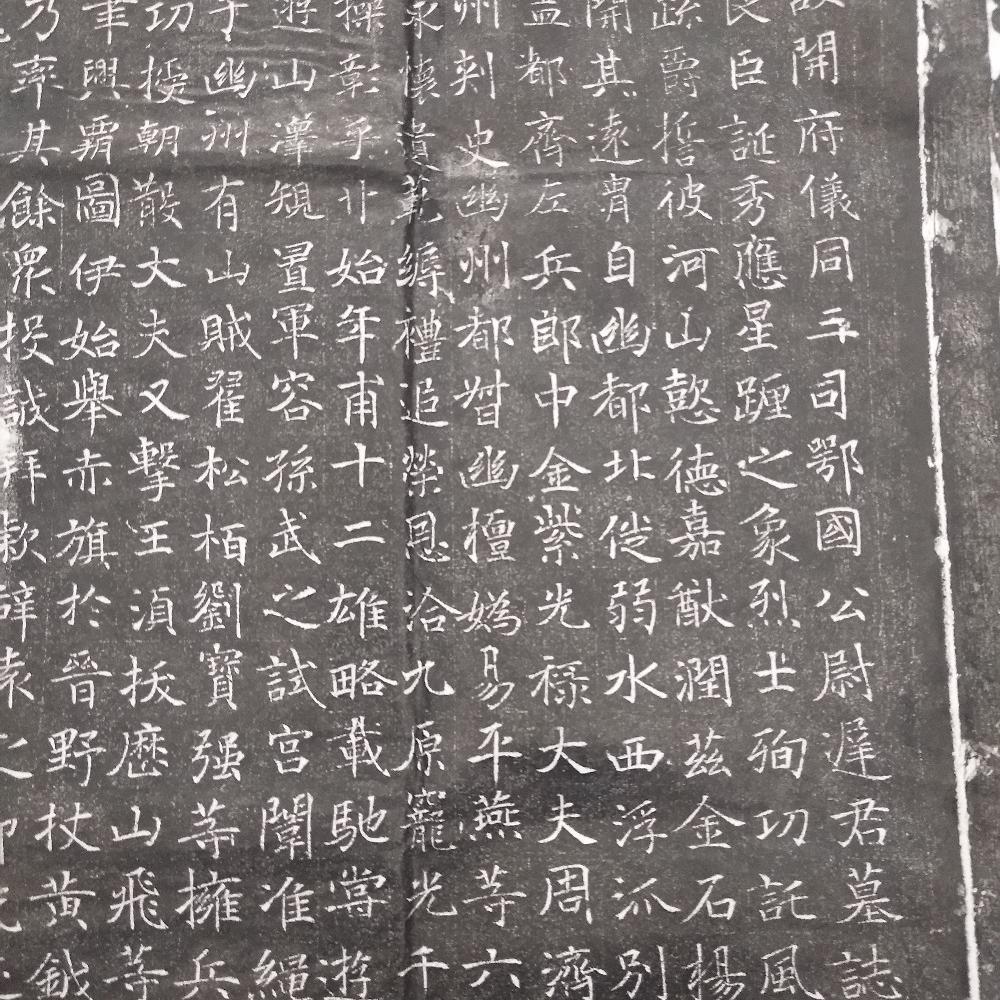 故開府儀同三司鄂國公尉遲君墓誌
良臣誕秀應星躔之象烈士殉功託風
疏爵誓彼河山懿德嘉猷潤茲金石楊
開其遠胄自幽都北徙弱水西浮派別
孟都齊左兵郎中金紫光祿大夫周濟
州刺史幽州都督幽檀媯易平燕等六
永懷遺範縟禮追榮恩洽九原寵光千
操彰乎丱始年甫十二雄略載馳嘗遊
遊山澤規置軍容孫武之試宮闈准繩
于幽州有山賊翟松栢劉寶强等擁兵
功授朝散大夫又擊王湏拔歷山飛等
聿興霸圖伊始舉赤旗於晉野杖黃鉞
乃率其餘眾投誠拜款辭